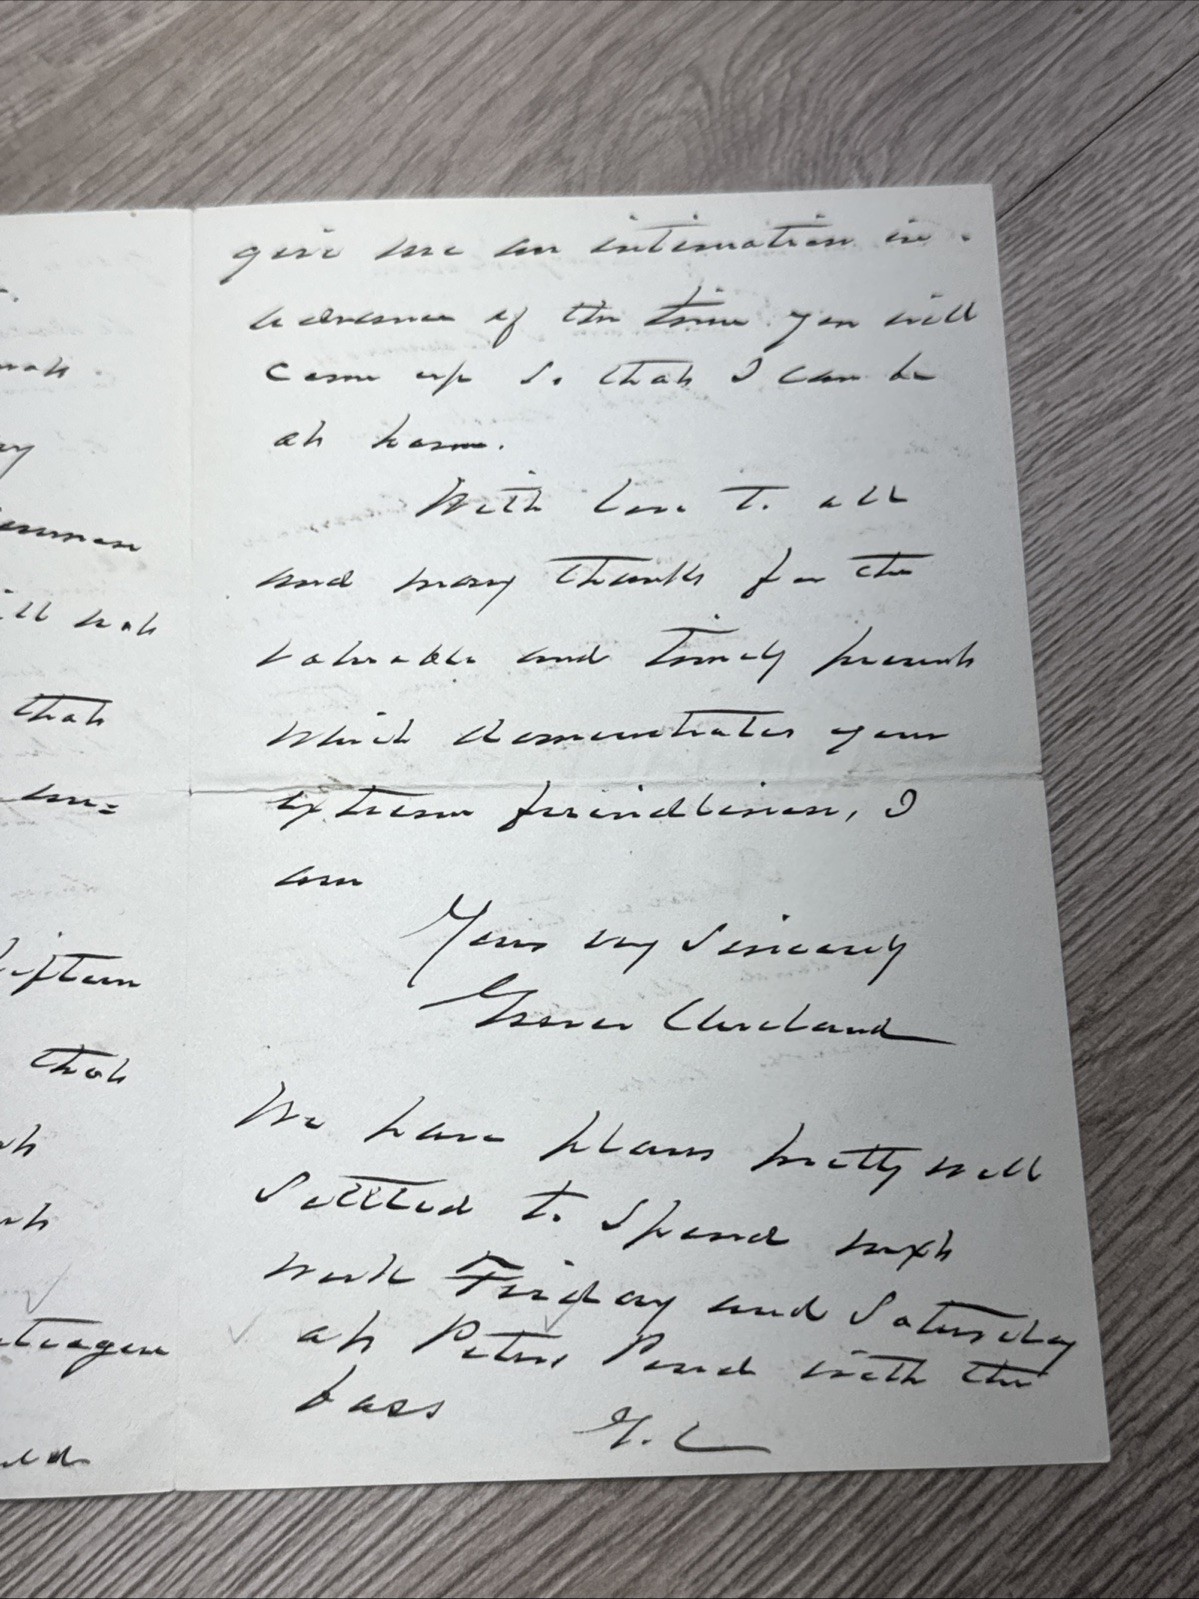 that
fifteen
that
give me an intimation in
advance of the time you will
come up so that I can be
at home.
With love to all
and many thanks for the
valuable and timely present
which demonstrates your
extreme friendliness, I
am
Yours very sincerely
Grover Cleveland
We have plans pretty well
settled to spend next
week Friday and Saturday
at Peters Pond with the
bass
G. C